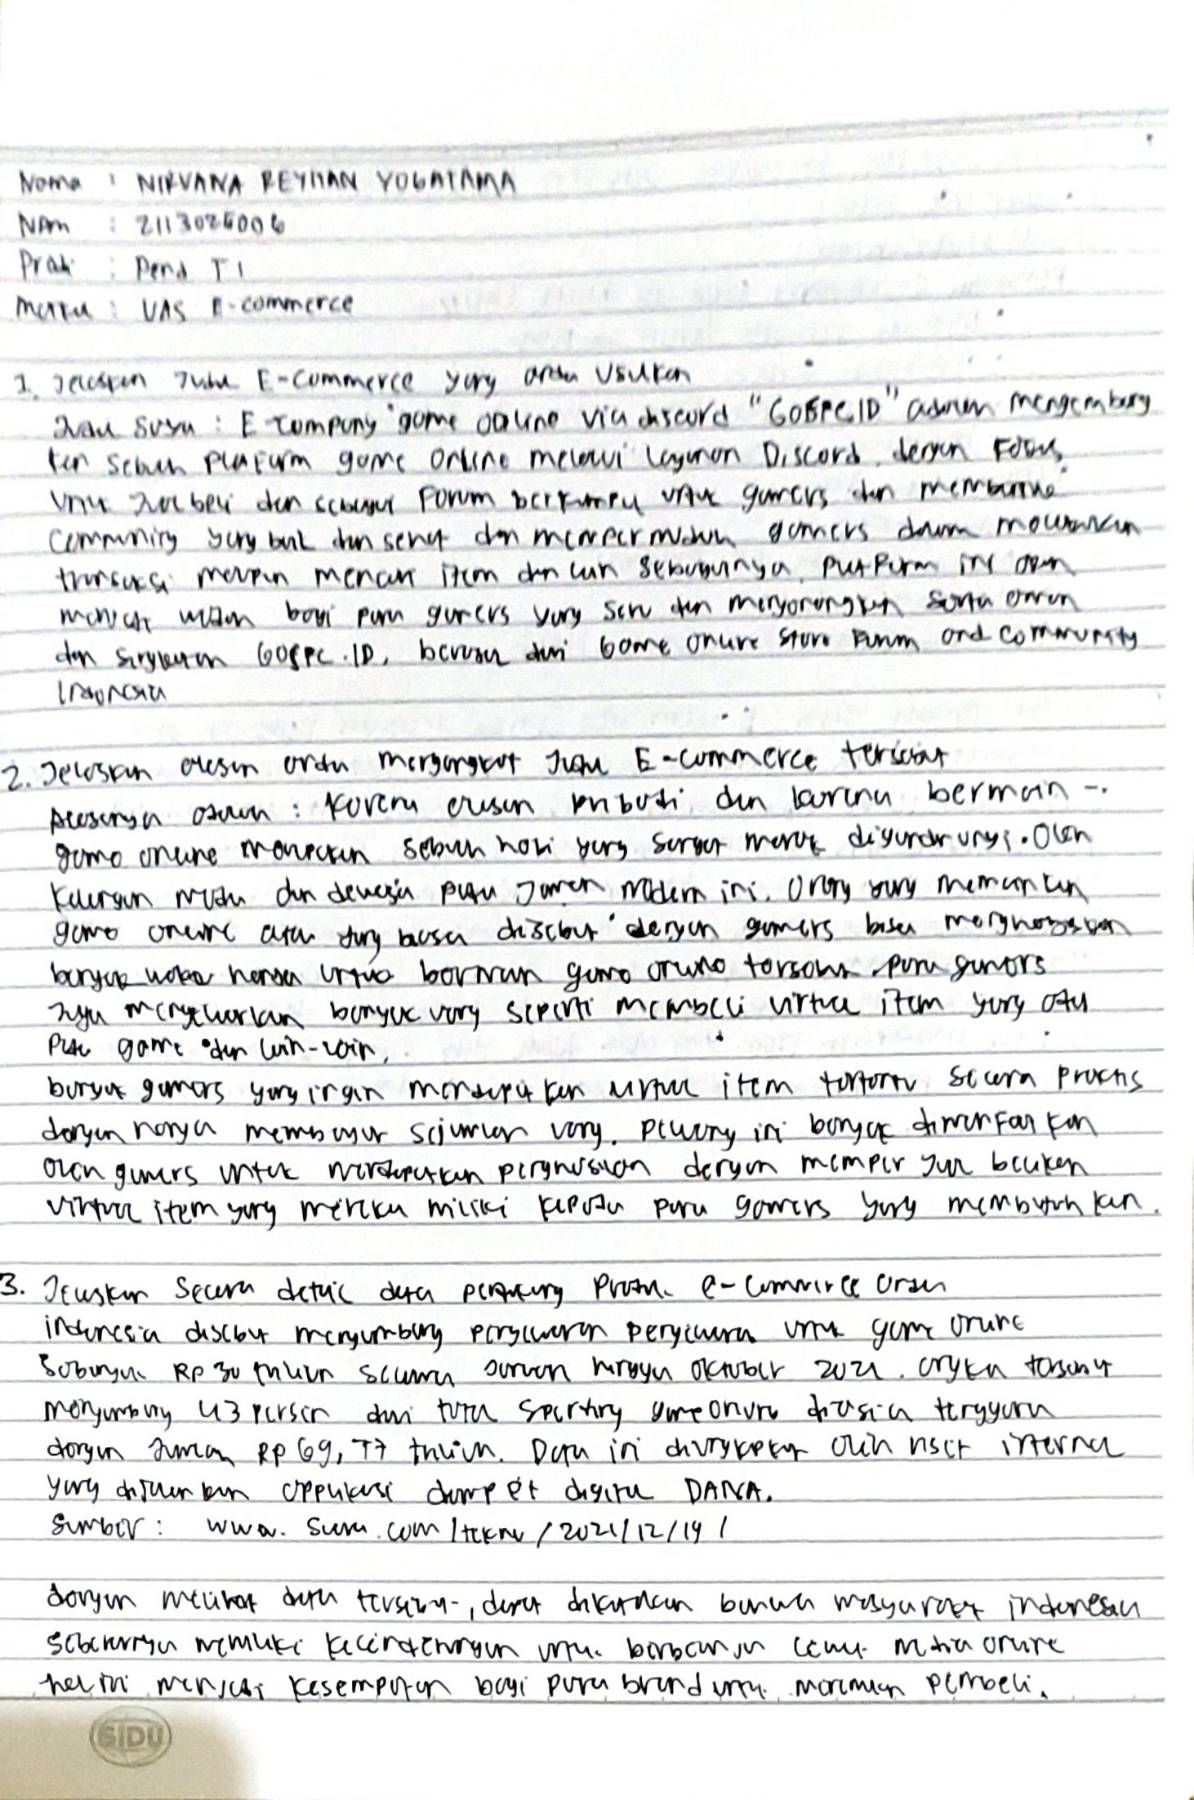 Nama : NIRVANA REYHAN YOGATAMA
NPM : 2113025006
Prodi : Pend TI
Matkul : UAS E-commerce
1. Jelaskan Judul E-Commerce yang anda usulkan
Judul Saya : E-Company game online via discord "GOBPC.ID" adalah mengembang
kan sebuah platform game online melalui layanan Discord dengan Fokus
untuk Jual beli dan sebagai Forum berkumpul untuk gamers dan membantu
Community yang baik dan sehat dan mempermudah gamers dalam melakukan
transaksi maupun mencari item dan lain sebagainya. Platform ini akan
menjadi wadah bagi para gamers yang seru dan menyenangkan serta
dan GOBPC.ID, berasal dari Game Online Store Forum and Community
Indonesia
2. Jelaskan alasan anda mengangkat Judul E-commerce tersebut
Alasannya adalah : Karena alasan pribadi dan karena bermain
game online merupakan sebuah hobi yang sangat digandrungi. Oleh
kalangan muda dan dewasa pada Jaman modern ini. Orang yang memainkan
game online atau yang biasa disebut dengan gamers bisa menghabiskan
banyak waktu hanya untuk bermain game online tersebut. para gamers
Juga mengeluarkan banyak uang seperti membeli virtual item yang ada
pada game dan lain-lain,
banyak gamers yang ingin mendapatkan virtual item tertentu secara praktis
dengan hanya membayar sejumlah uang. Peluang ini banyak dimanfaatkan
oleh gamers untuk mendapatkan penghasilan dengan memperjual belikan
virtual item yang mereka miliki kepada para gamers yang membutuhkan.
3. Jelaskan Secara detail data pendukung Produk e-commerce anda
indonesia disebut menyumbang pengeluaran untuk game online
Sebanyak Rp 30 triliun selama hingga oktober 2021. angka tersebut
menyumbang 43 persen dari total Spending game online diasia tenggara
dengan Jumlah Rp 69,77 triliun. Data ini diungkapkan oleh riset internal
yang dijalankan applikasi dompet digital DANA.
Sumber : www. Suara.com/tekno/2021/12/19/
dengan melihat data tersebut, dapat dikatakan bahwa masyarakat indonesia
sebenarnya memiliki kecenderungan untuk berbelanja lewat media online
hal ini menjadi kesempatan bagi para brand untuk menemukan pembeli.
SIDU